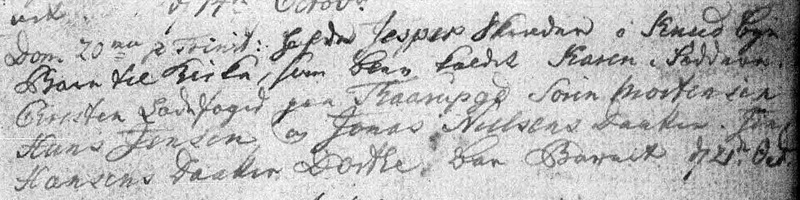 d 14de Octobr
Dom. 20ma p Trinit: hafde Jesper Skræder i Knud bye
Barn til Kirke, som blev kaldet Karen. Faddere.
Christen Ladefoged paa Taarupgd Sören Mortensen
Hans Jensen og Jonas Nielsens Daatter.
Hansens Daatter Dorthe bar Barnet d 21de Oct.